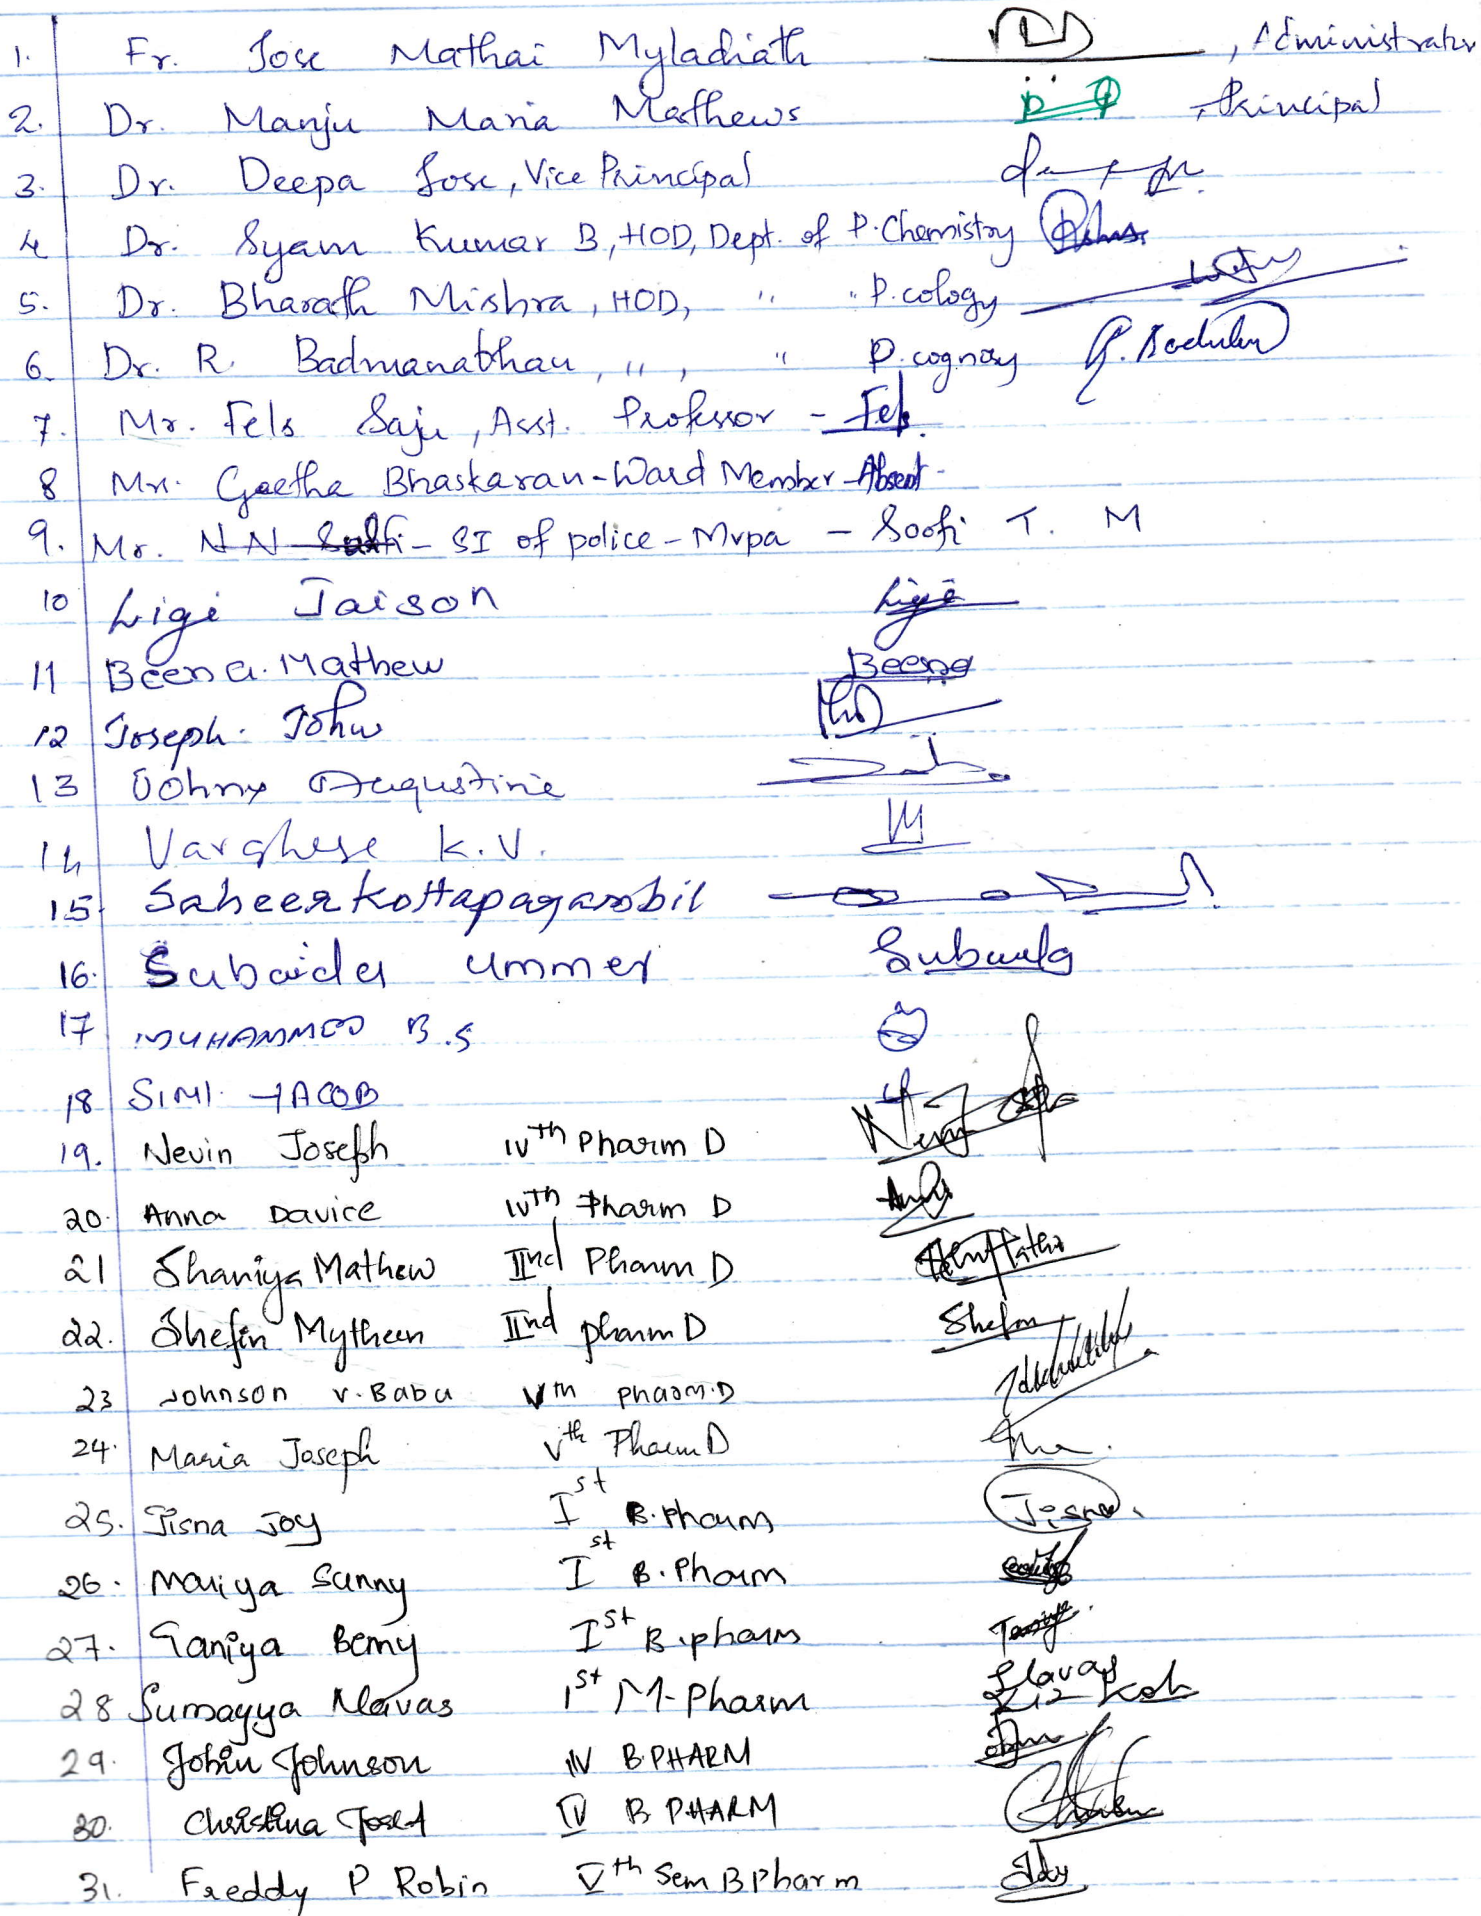 1. Fr. Jose Mathai Myladiath , Administrator
2. Dr. Manju Maria Mathews , Principal
3. Dr. Deepa Jose, Vice Principal
4 Dr. Syam Kumar B, HOD, Dept. of P. Chemistry
5. Dr. Bharath Mishra, HOD, " " P.cology
6. Dr. R. Badmanabhan, ", " P.cognosy
7. Mr. Fels Saju, Asst. Professor - Fels
8 Mrs. Geetha Bhaskaran - Ward Member - Absent -
9. Mr. N N Sulfi - SI of police - Mvpa - Soofi T. M
10 Ligi Jaison Ligi
11 Beena. Mathew Beena
12 Joseph. John
13 Johny Augustine
14 Varghese K.V.
15 Saheer Kottaparambil
16. Subaida Ummer Subaida
17 MUHAMMED B.S
18 SIMI JACOB
19. Nevin Joseph IVth Pharm D Nevin
20. Anna Davice IVth Pharm D
21 Shaniya Mathew IInd Pharm D
22. Shefin Mytheen IInd pharm D Shefin
23 Johnson V. Babu Vth pharm.D
24. Maria Joseph Vth Pharm D
25. Jisna Joy Ist B.Pharm Jisna.
26. Mariya Sunny Ist B.Pharm
27. Taniya Bemy Ist B.pharm
28 Sumayya Navas 1st M-Pharm
29. Jobin Johnson IV B.PHARM
30. Christina Jose IV B PHARM
31. Freddy P Robin Vth Sem B Pharm